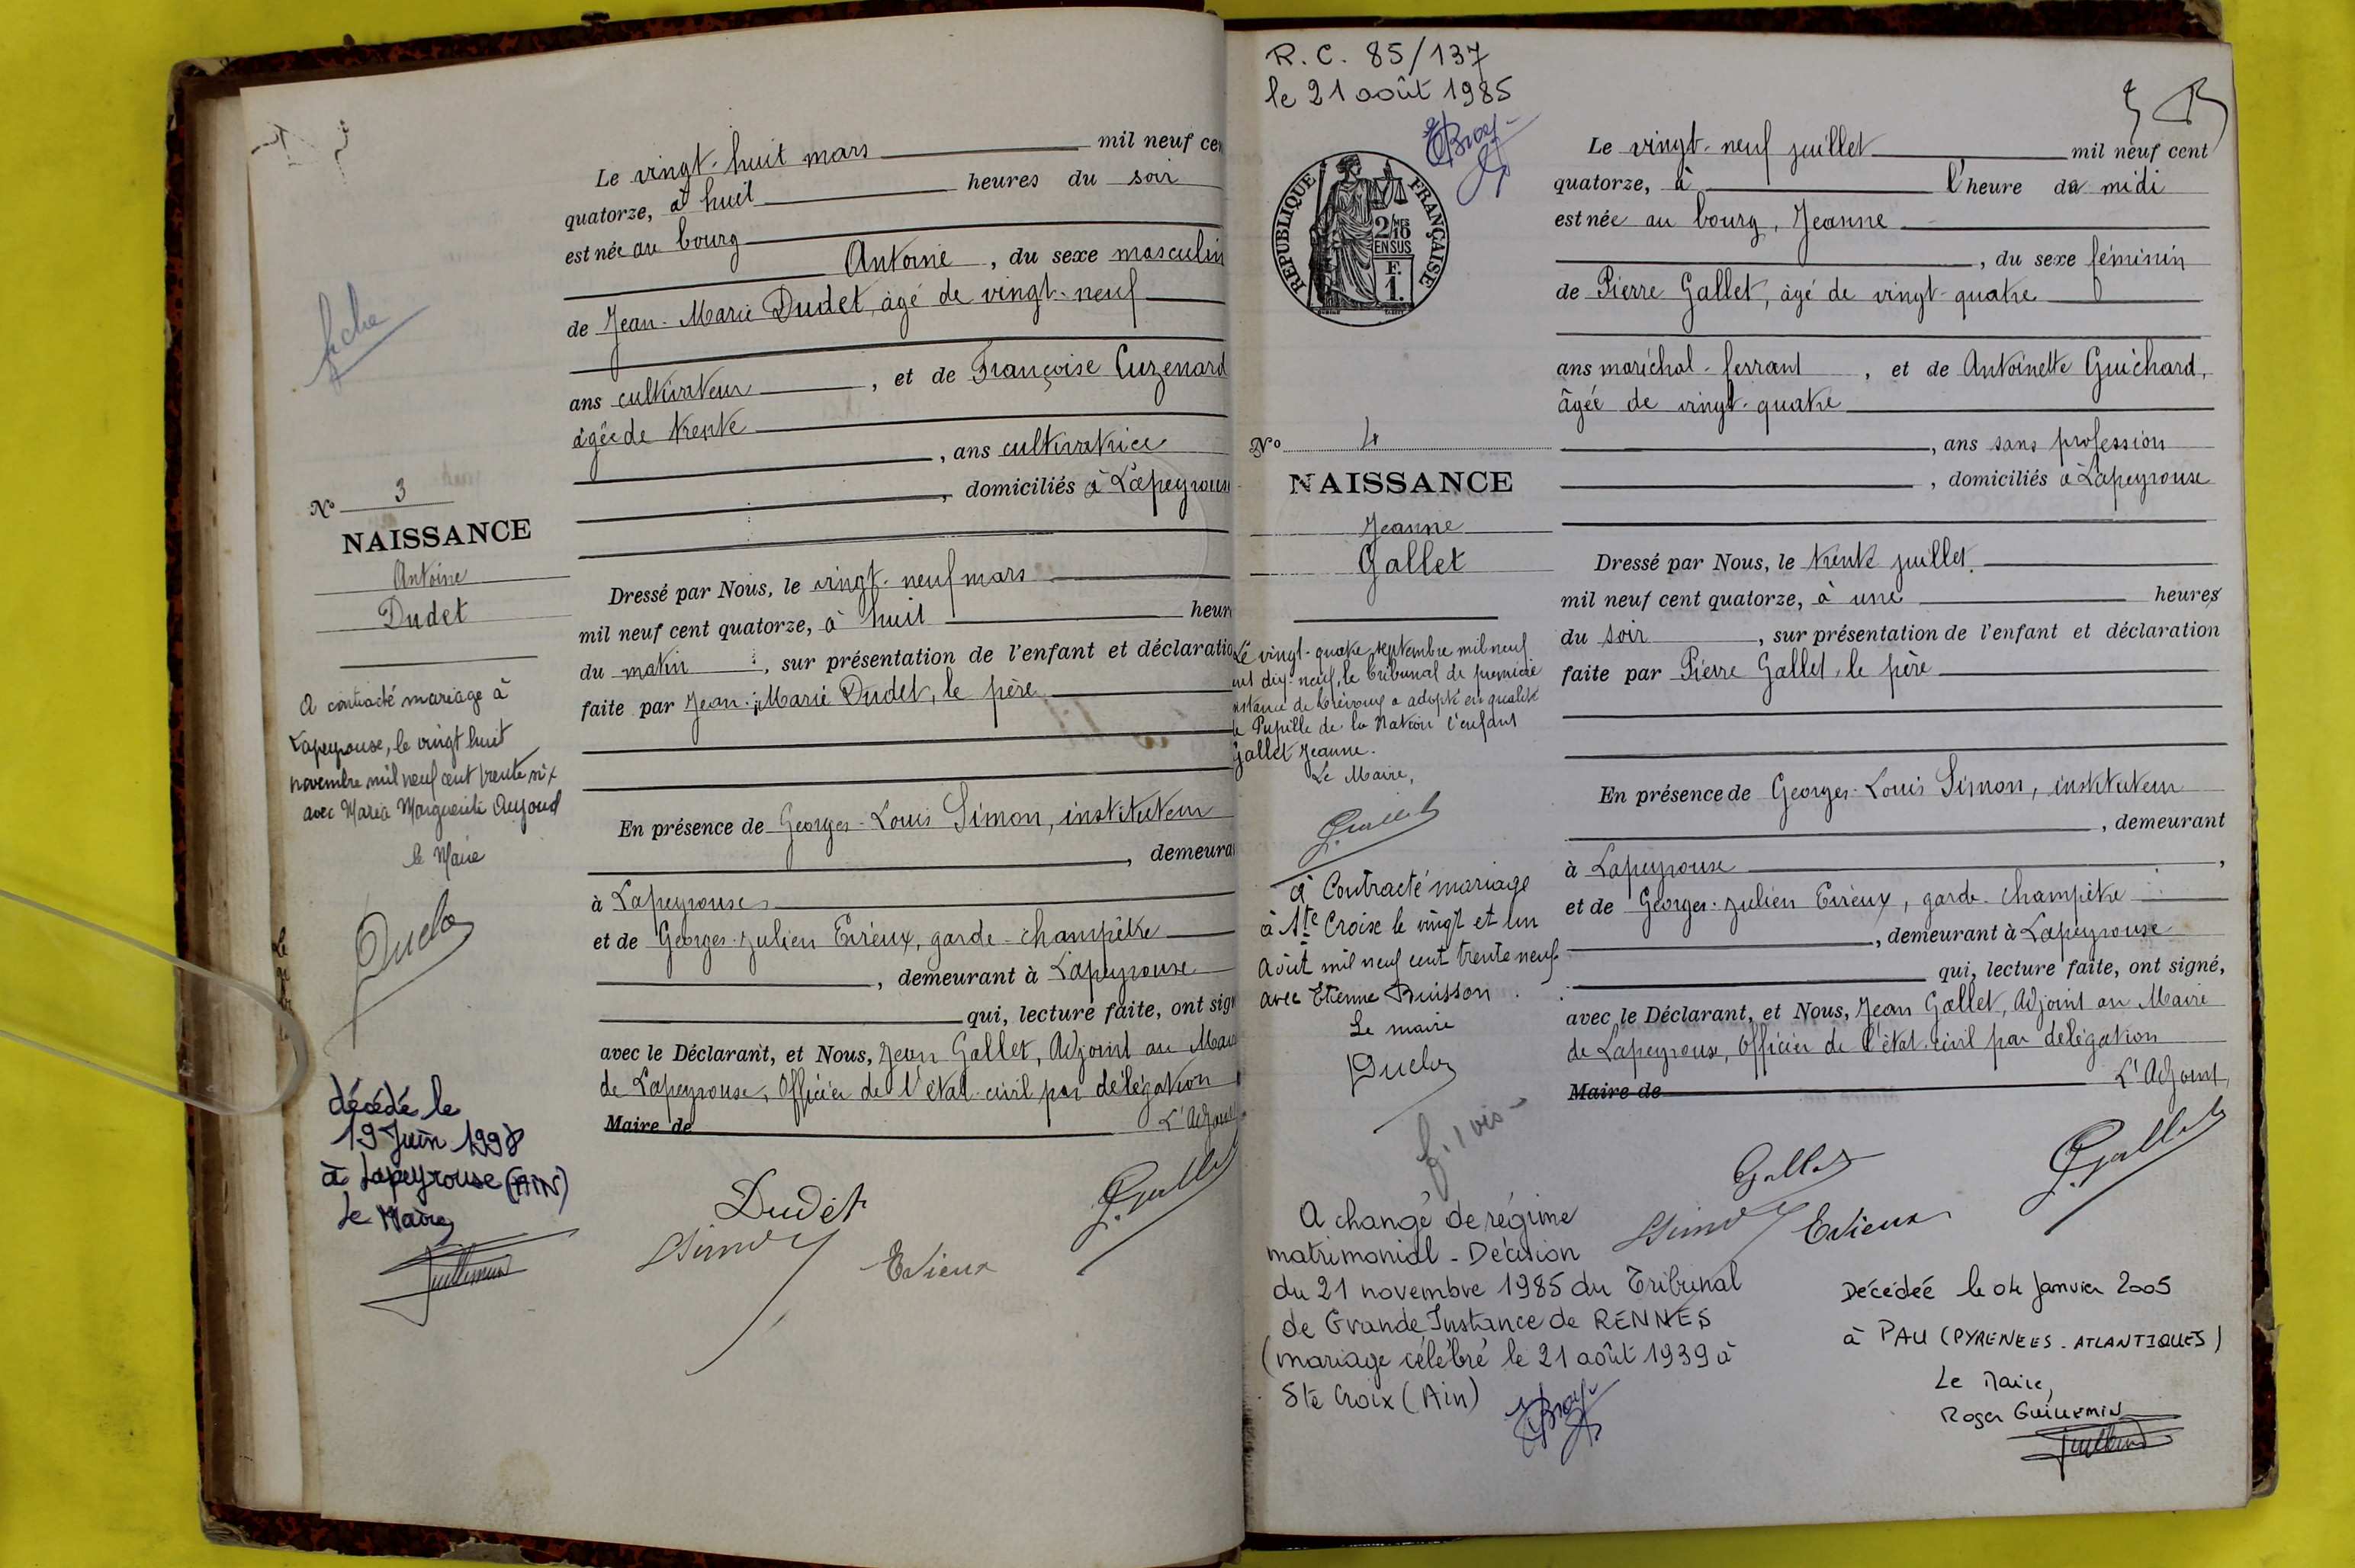 fiche
N° 3
NAISSANCE
Antoine
Dudet
A contracté mariage à
Lapeyrouse, le vingt huit
novembre mil neuf cent trente six
avec Maria Marguerite
le Maire
décédé le
19 Juin 1998
à Lapeyrouse (AIN)
Le Maire
Le vingt-huit mars mil neuf cen
quatorze, à huit heures du soir
est née au bourg
Antoine, du sexe masculin
de Jean-Marie Dudet, âgé de vingt-neuf
ans cultivateur, et de Françoise Cuzenard
âgée de trente
, ans cultivatrice
, domiciliés à Lapeyrouse
Dressé par Nous, le vingt-neuf mars
mil neuf cent quatorze, à huit heur
du matin, sur présentation de l'enfant et déclaratio
faite par Jean-Marie Dudet, le père
En présence de Georges-Louis Simon, instituteur
, demeura
à Lapeyrouse
et de Georges-Julien Evieux, garde-champêtre
, demeurant à Lapeyrouse
qui, lecture faite, ont sign
avec le Déclarant, et Nous, Jean Gallet, Adjoint au Mai
de Lapeyrouse, Officier de l'état-civil par délégation
Maire de L'Adjoint
Dudet
Evieux
R.C. 85/137
le 21 août 1985
REPUBLIQUE FRANÇAISE
2/10
EN SUS
F.
1.
N° 4
NAISSANCE
Jeanne
Gallet
Le vingt-quatre septembre mil neuf
cent dix-neuf, le Tribunal de première
instance de Trévoux a adopté en qualité
de Pupille de la Nation l'enfant
Gallet Jeanne.
Le Maire,
J. Gallet
A Contracté mariage
à Ste Croise le vingt et un
Août mil neuf cent trente neuf
avec Etienne Buisson.
Le maire
A changé de régime
matrimonial - Décision
du 21 novembre 1985 du Tribunal
de Grande Instance de RENNES
(mariage célébré le 21 août 1939 à
Ste Croix (Ain)
Le vingt-neuf juillet mil neuf cent
quatorze, à l'heure da midi
est née au bourg, Jeanne
, du sexe féminin
de Pierre Gallet, âgé de vingt-quatre
ans maréchal-ferrant, et de Antoinette Guichard,
âgée de vingt-quatre
, ans sans profession
, domiciliés à Lapeyrouse
Dressé par Nous, le trente juillet
mil neuf cent quatorze, à une heures
du soir, sur présentation de l'enfant et déclaration
faite par Pierre Gallet, le père
En présence de Georges-Louis Simon, instituteur
, demeurant
à Lapeyrouse,
et de Georges-Julien Evieux, garde-champêtre
, demeurant à Lapeyrouse
qui, lecture faite, ont signé,
avec le Déclarant, et Nous, Jean Gallet, Adjoint au Maire
de Lapeyrouse, Officier de l'état-civil par délégation
Maire de L'Adjoint
Gallet
J. Gallet
Evieux
Décédée le 04 Janvier 2005
à PAU (PYRENEES-ATLANTIQUES)
Le Maire,
Roger GUILLEMIN